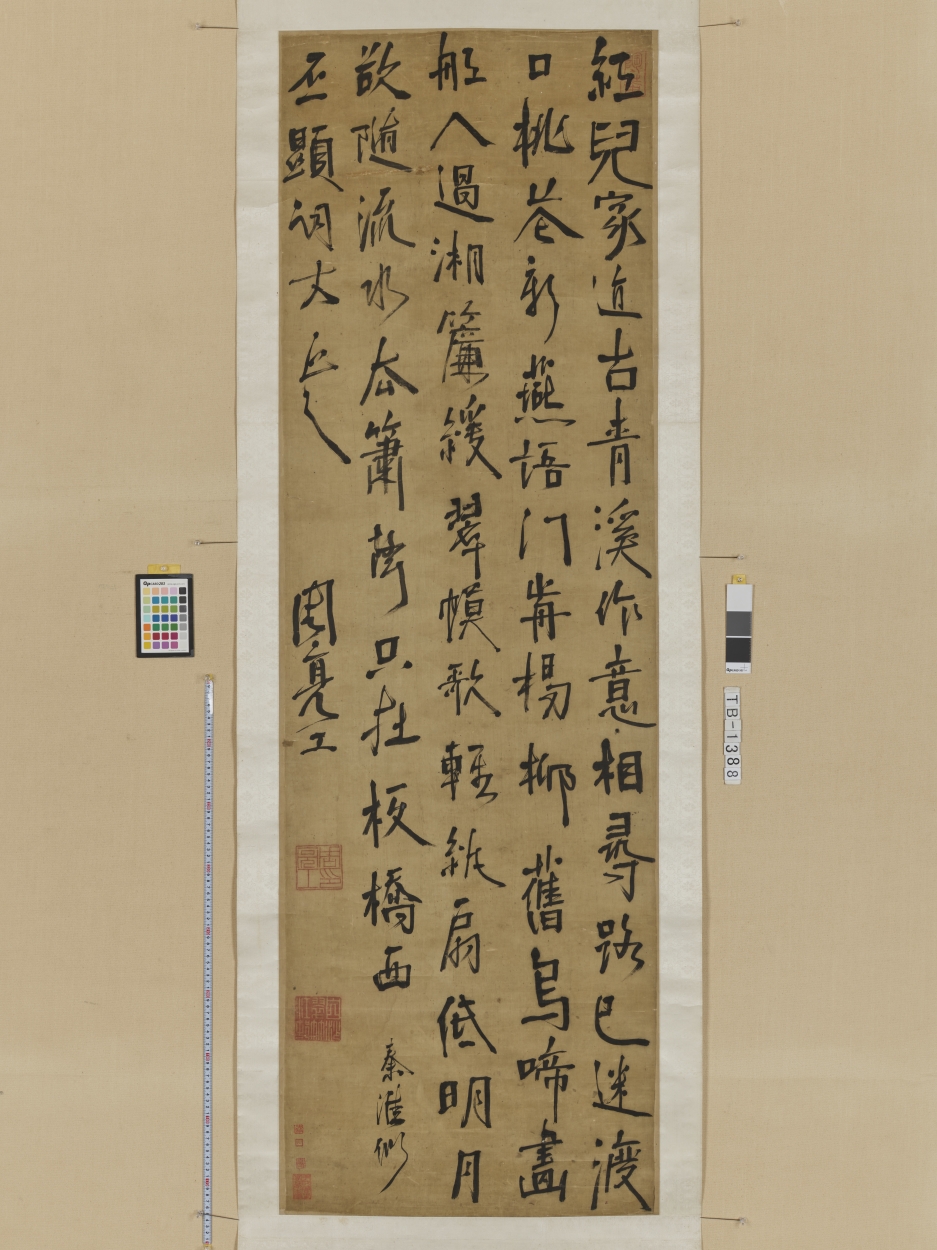 紅兒家近古青溪作意相尋路已迷渡
口桃花新燕語門歬楊柳舊烏啼畫
舡人過湘簾緩翠幙歌輕紈扇低明月
欲隨流水去簫聲只在板橋西 秦淮似
丕顯詞丈正之 周亮工
TB-1388